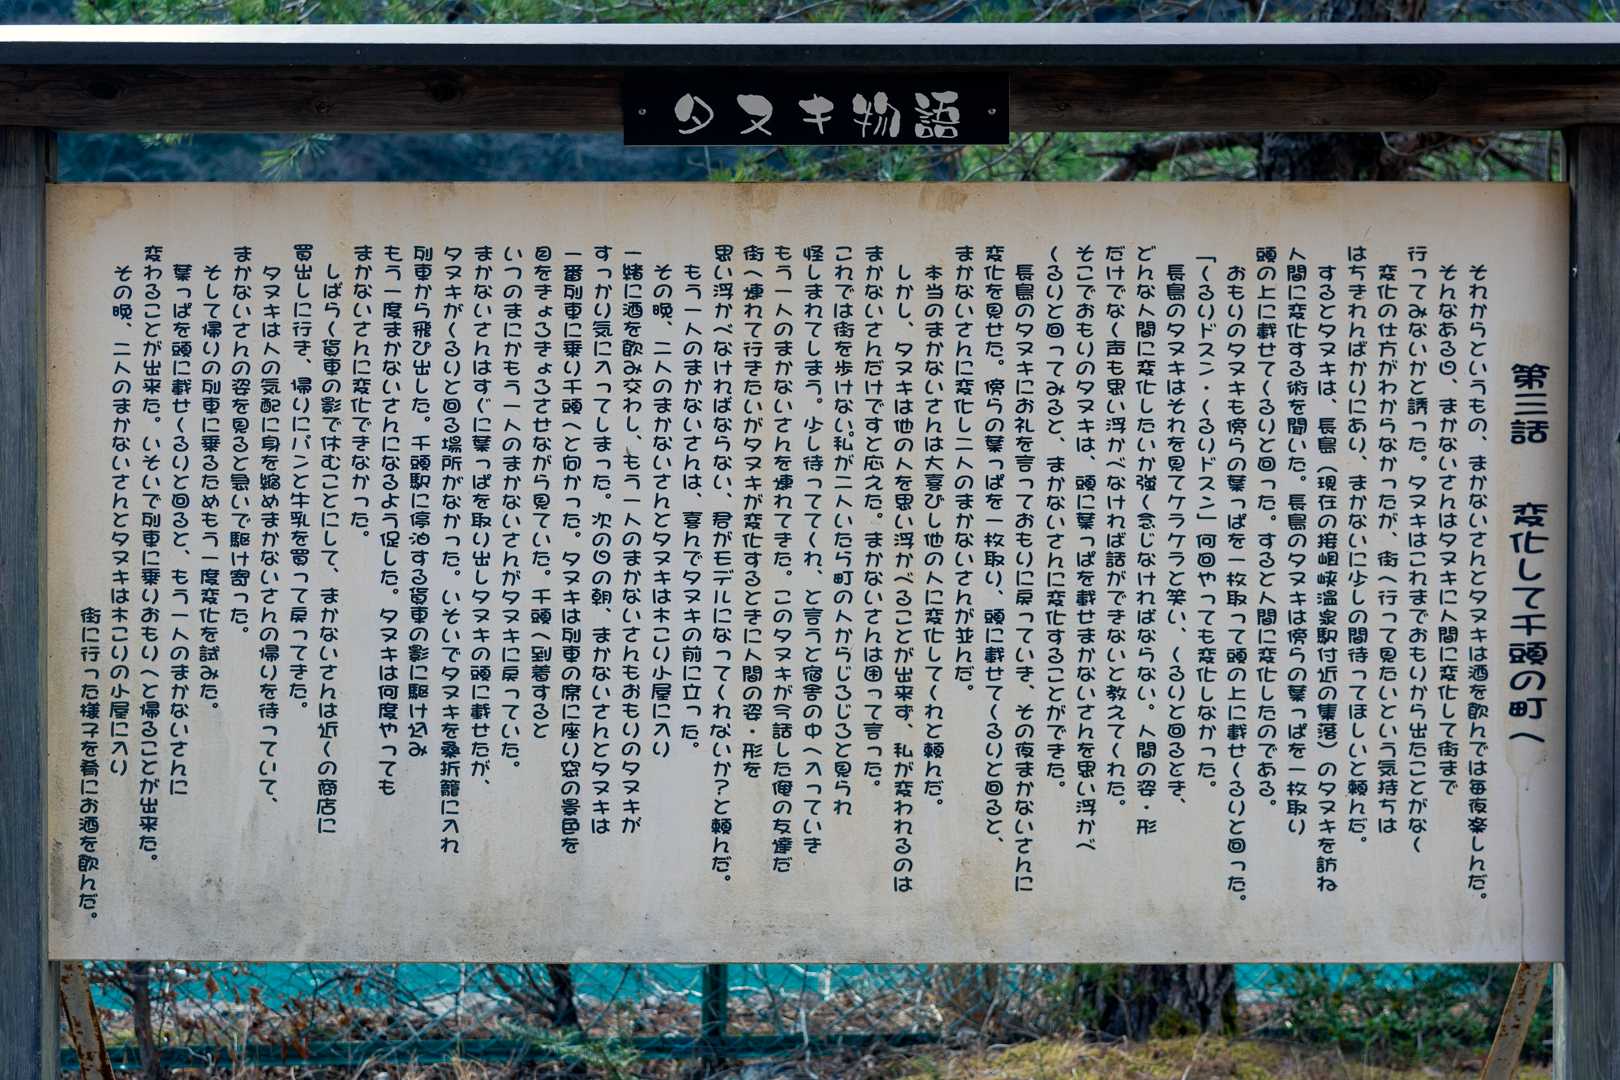 タヌキ物語
第三話　変化して千頭の町へ
それからというもの、まかないさんとタヌキは酒を飲んでは毎夜楽しんだ。
そんなある日、まかないさんはタヌキに人間に変化して街まで
行ってみないかと誘った。タヌキはこれまでおもりから出たことがなく
変化の仕方がわからなかったが、街へ行って見たいという気持ちは
はちきれんばかりにあり、まかないに少しの間待ってほしいと頼んだ。
するとタヌキは、長島（現在の接岨峡温泉駅付近の集落）のタヌキを訪ね
人間に変化する術を聞いた。長島のタヌキは傍らの葉っぱを一枚取り
頭の上に載せてくるりと回った。すると人間に変化したのである。
おもりのタヌキも傍らの葉っぱを一枚取って頭の上に載せくるりと回った。
「くるりドスン・くるりドスン」何回やっても変化しなかった。
長島のタヌキはそれを見てケラケラと笑い、くるりと回るとき、
どんな人間に変化したいか強く念じなければならない。人間の姿・形
だけでなく声も思い浮かべなければ話ができないと教えてくれた。
そこでおもりのタヌキは、頭に葉っぱを載せまかないさんを思い浮かべ
くるりと回ってみると、まかないさんに変化することができた。
長島のタヌキにお礼を言っておもりに戻っていき、その夜まかないさんに
変化を見せた。傍らの葉っぱを一枚取り、頭に載せてくるりと回ると、
まかないさんに変化し二人のまかないさんが並んだ。
本当のまかないさんは大喜びし他の人に変化してくれと頼んだ。
しかし、タヌキは他の人を思い浮かべることが出来ず、私が変われるのは
まかないさんだけですと応えた。まかないさんは困って言った。
これでは街を歩けない私が二人いたら町の人からじろじろと見られ
怪しまれてしまう。少し待っててくれ、と言うと宿舎の中へ入っていき
もう一人のまかないさんを連れてきた。このタヌキが今話した俺の友達だ
街へ連れて行きたいがタヌキが変化するときに人間の姿・形を
思い浮かべなければならない、君がモデルになってくれないか？と頼んだ。
もう一人のまかないさんは、喜んでタヌキの前に立った。
その晩、二人のまかないさんとタヌキは木こり小屋に入り
一緒に酒を飲み交わし、もう一人のまかないさんもおもりのタヌキが
すっかり気に入ってしまった。次の日の朝、まかないさんとタヌキは
一番列車に乗り千頭へと向かった。タヌキは列車の席に座り窓の景色を
目をきょろきょろさせながら見ていた。千頭へ到着すると
いつのまにかもう一人のまかないさんがタヌキに戻っていた。
まかないさんはすぐに葉っぱを取り出しタヌキの頭に載せたが、
タヌキがくるりと回る場所がなかった。いそいでタヌキを桑折籠に入れ
列車から飛び出した。千頭駅に停泊する貨車の影に駆け込み
もう一度まかないさんになるよう促した。タヌキは何度やっても
まかないさんに変化できなかった。
しばらく貨車の影で休むことにして、まかないさんは近くの商店に
買出しに行き、帰りにパンと牛乳を買って戻ってきた。
タヌキは人の気配に身を縮めまかないさんの帰りを待っていて、
まかないさんの姿を見ると急いで駆け寄った。
そして帰りの列車に乗るためもう一度変化を試みた。
葉っぱを頭に載せくるりと回ると、もう一人のまかないさんに
変わることが出来た。いそいで列車に乗りおもりへと帰ることが出来た。
その晩、二人のまかないさんとタヌキは木こりの小屋に入り
街に行った様子を肴にお酒を飲んだ。